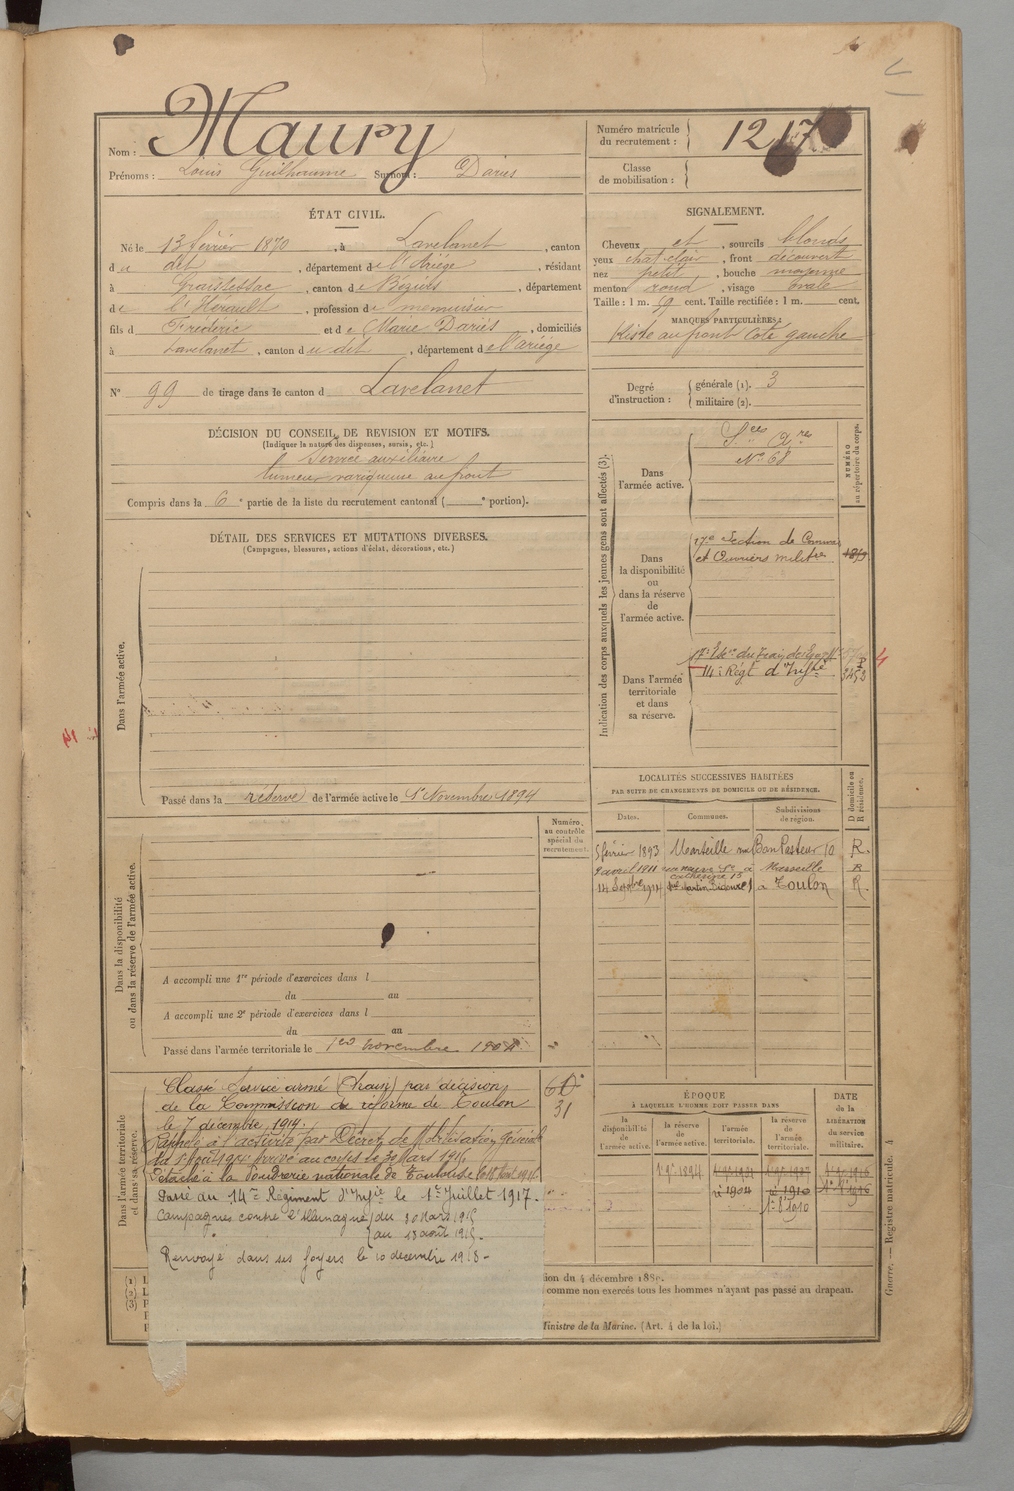 Nom : Maury
Prénoms : Louis Guilhaume Surnom : Dariès
Numéro matricule du recrutement : 1217
Classe de mobilisation :
ÉTAT CIVIL.
Né le 13 février 1870, à Lavelanet, canton
du dit, département de l'Ariège, résidant
à Graissessac, canton de Béziers, département
de l'Hérault, profession de menuisier
fils d Frédéric et de Marie Dariès, domiciliés
à Lavelanet, canton du dit, département de l'ariège
N° 99 de tirage dans le canton d Lavelanet
SIGNALEMENT.
Cheveux et, sourcils blonds
yeux chat. clair, front découvert
nez petit, bouche moyenne
menton rond, visage ovale
Taille : 1 m. 59 cent. Taille rectifiée : 1 m. cent.
MARQUES PARTICULIÈRES :
Kiste au front coté gauche
Degré d'instruction : générale (1). 3
militaire (2).
DÉCISION DU CONSEIL DE REVISION ET MOTIFS.
(Indiquer la nature des dispenses, sursis, etc.)
Service auxiliaire
tumeur variqueuse au front
Compris dans la 6e partie de la liste du recrutement cantonal (e portion).
DÉTAIL DES SERVICES ET MUTATIONS DIVERSES.
(Campagnes, blessures, actions d'éclat, décorations, etc.)
Dans l'armée active.
Passé dans la réserve de l'armée active le 1er Novembre 1894
Indication des corps auxquels les jeunes gens sont affectés (3).
NUMÉRO au répertoire du corps.
Dans l'armée active.
Sces Ares
N° 68
Dans la disponibilité ou dans la réserve de l'armée active.
17e Section de Commis
et Ouvriers militres
Dans l'armée territoriale et dans sa réserve.
17e Esc. du Train des Eq. Mres
14e Régt d'Inftie
LOCALITÉS SUCCESSIVES HABITÉES
PAR SUITE DE CHANGEMENTS DE DOMICILE OU DE RÉSIDENCE.
Dates. Communes. Subdivisions de région. D domicile ou R résidence.
5 février 1893 Marseille rue Bon Pasteur 10 R.
9 avril 1911 à Marseille R
14 1914 à Toulon R.
Numéro au contrôle spécial du recrutement.
Dans la disponibilité ou dans la réserve de l'armée active.
A accompli une 1re période d'exercices dans l
du au
A accompli une 2e période d'exercices dans l
du au
Passé dans l'armée territoriale le 1er novembre 1904.
Dans l'armée territoriale et dans sa réserve.
Classé Service armé (Train) par décision
de la Commission de réforme de Toulon
le 7 décembre 1914.
Rappelé à l'activité par Décret de Mobilisation Générale
du 1er Août 1914. Arrivé au corps le 30 Mars 1915
Détaché à la Poudrerie nationale de Toulouse le 18 Août 1915.
Passé au 14me Régiment d'Infie le 1er Juillet 1917.
Campagnes contre l'Allemagne (du 30 Mars 1915
(au 18 août 1915.
Renvoyé dans ses foyers le 10 décembre 1918.
31
ÉPOQUE
À LAQUELLE L'HOMME DOIT PASSER DANS
la disponibilité de l'armée active.
la réserve de l'armée active.
l'armée territoriale.
la réserve de l'armée territoriale.
DATE de la LIBÉRATION du service militaire.
1er 9bre 1894
1904 1910
1er 8 1910
tion du 4 décembre 1889.
comme non exercés tous les hommes n'ayant pas passé au drapeau.
Ministre de la Marine. (Art. 4 de la loi.)
Guerre. — Registre matricule. 4